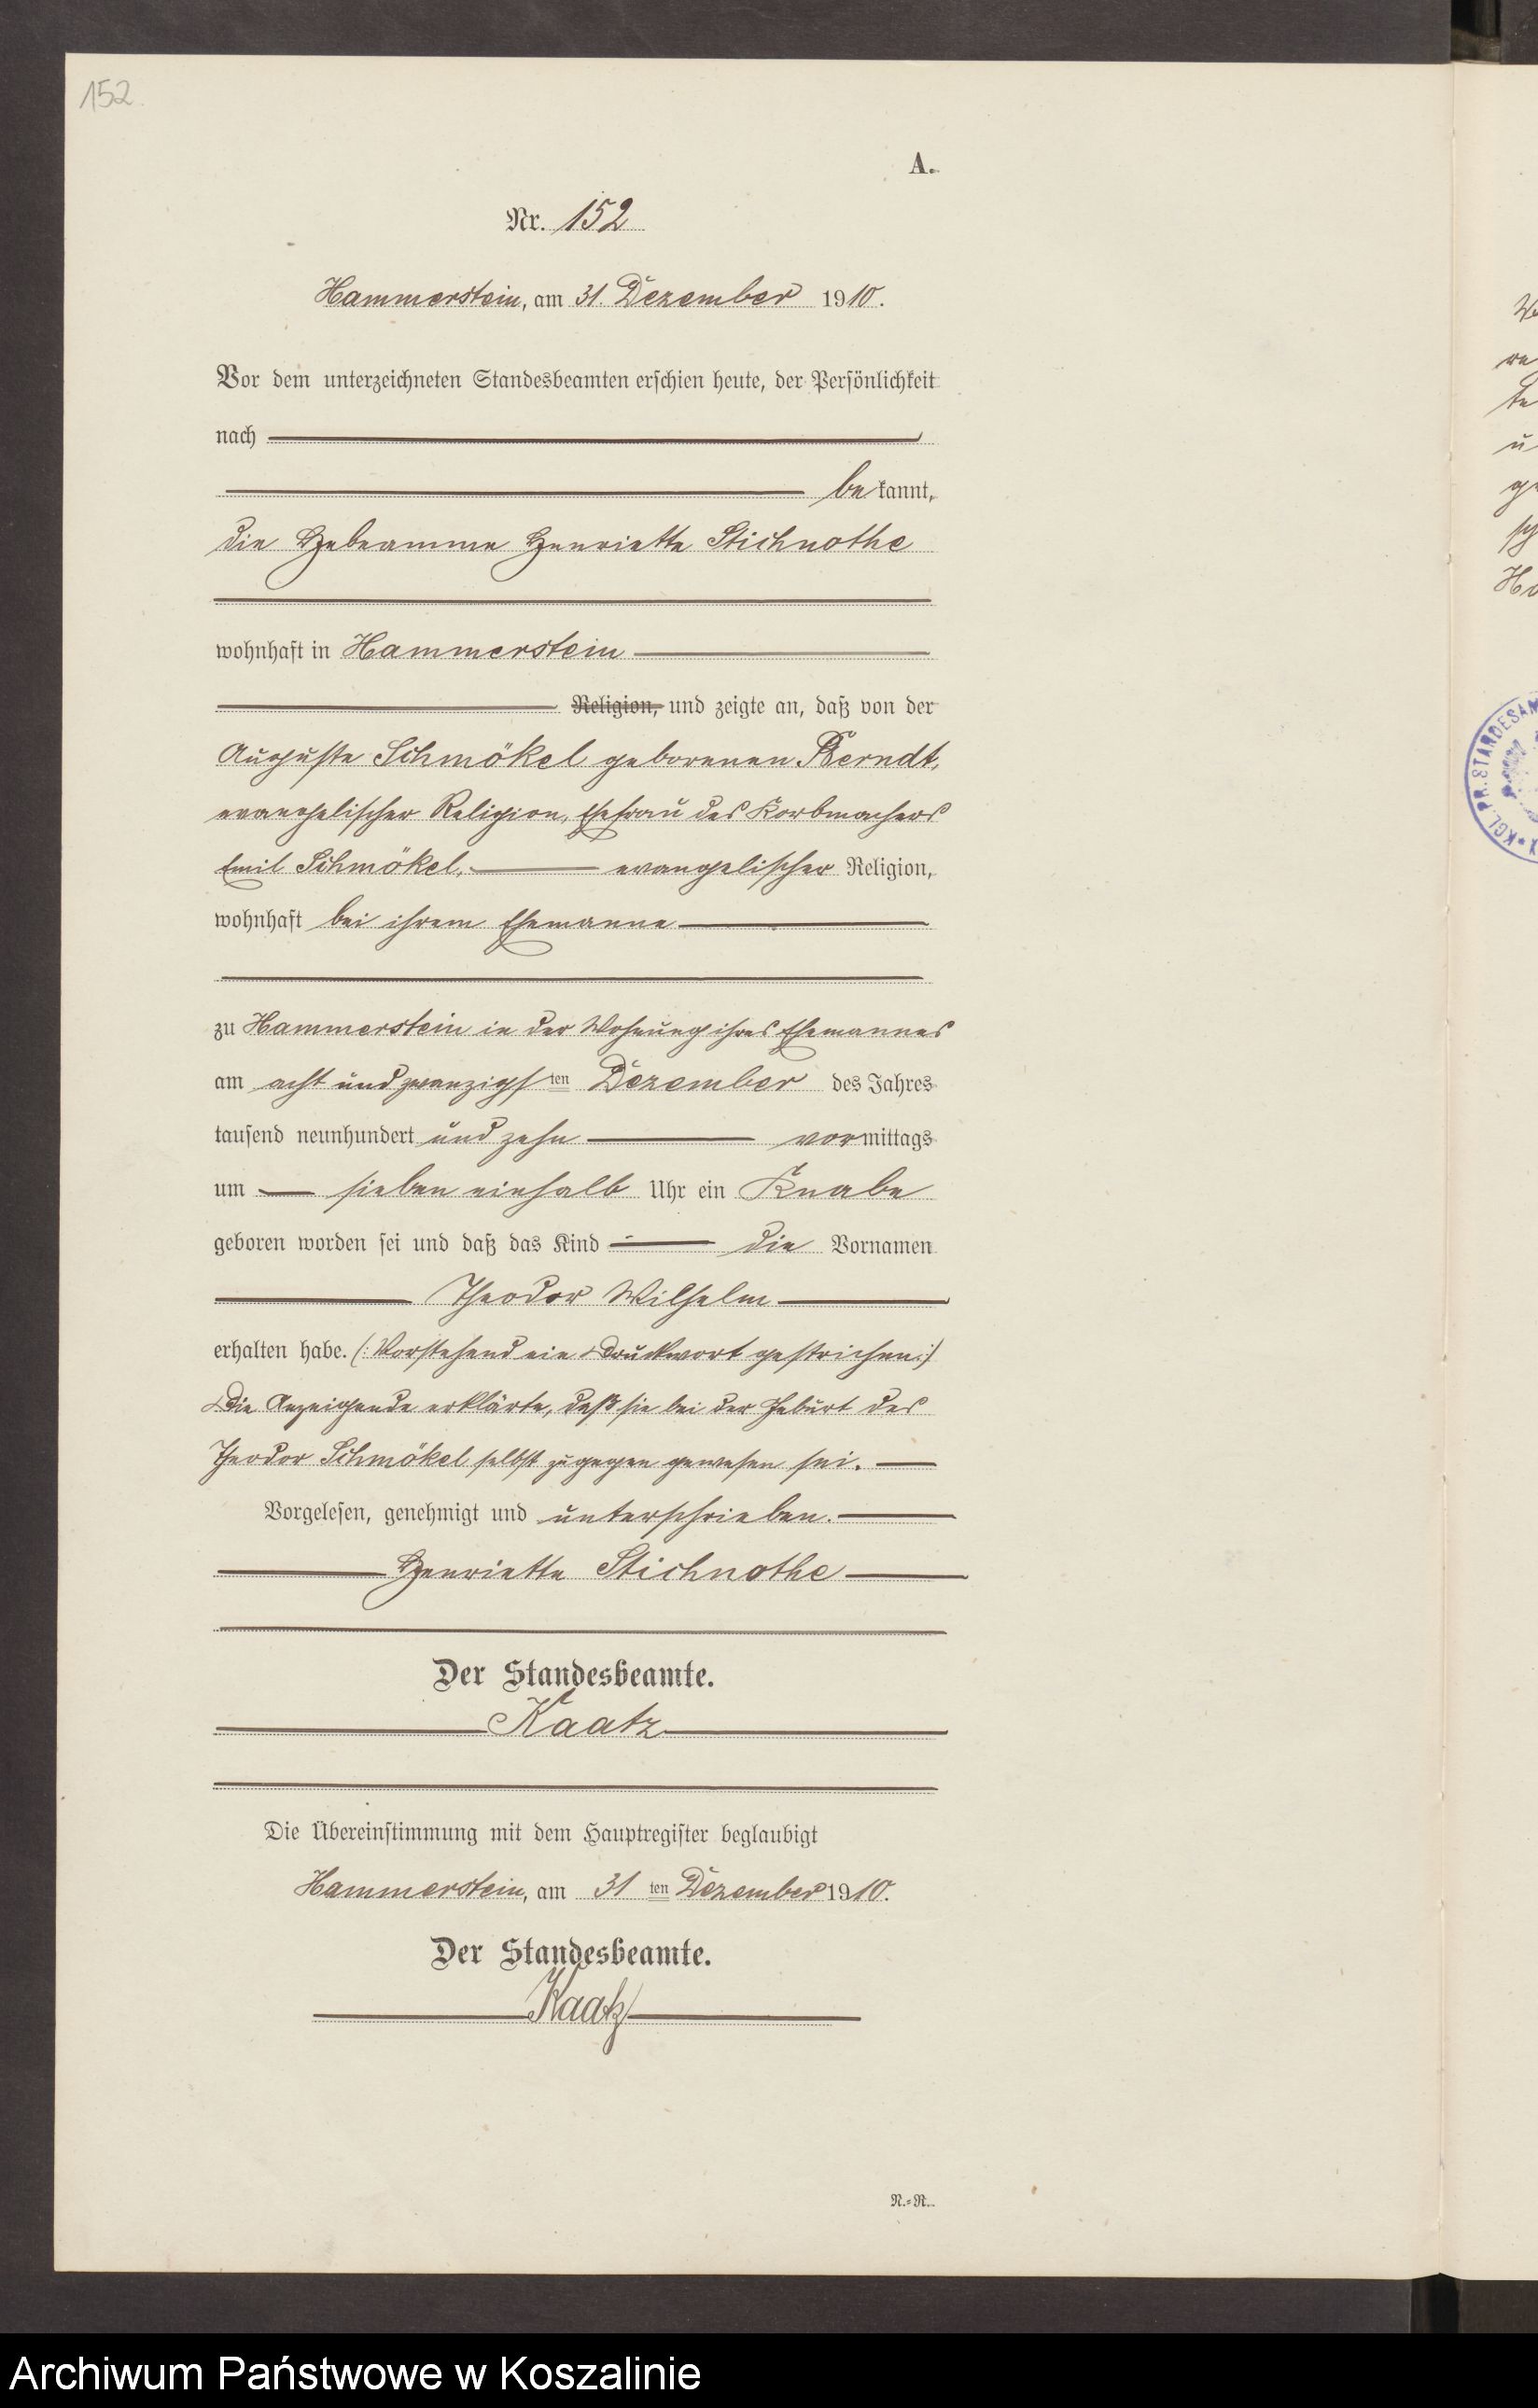 152.
A.
Nr. 152
Hammerstein, am 31. Dezember 1910.
Vor dem unterzeichneten Standesbeamten erschien heute, der Persönlichkeit
nach
bekannt,
die Hebeamme Henriette Stichnothe
wohnhaft in Hammerstein
Religion, und zeigte an, daß von der
Auguste Schmökel geborenen Berndt,
evangelischer Religion, Ehefrau des Korbmachers
Emil Schmökel, evangelischer Religion,
wohnhaft bei ihrem Ehemanne
zu Hammerstein in der Wohnung ihres Ehemannes
am acht und zwanzigsten Dezember des Jahres
tausend neunhundert und zehn vormittags
um sieben einhalb Uhr ein Knabe
geboren worden sei und daß das Kind die Vornamen
Theodor Wilhelm
erhalten habe. (: Vorstehend ein Druckwort gestrichen :)
Die Anzeigende erklärte, daß sie bei der Geburt des
Theodor Schmökel selbst zugegen gewesen sei.
Vorgelesen, genehmigt und unterschrieben.
Henriette Stichnothe
Der Standesbeamte.
Kaatz
Die Übereinstimmung mit dem Hauptregister beglaubigt
Hammerstein, am 31ten Dezember 1910.
Der Standesbeamte.
Kaatz
N.=R.
KGL. PR. STANDESAM
Archiwum Państwowe w Koszalinie